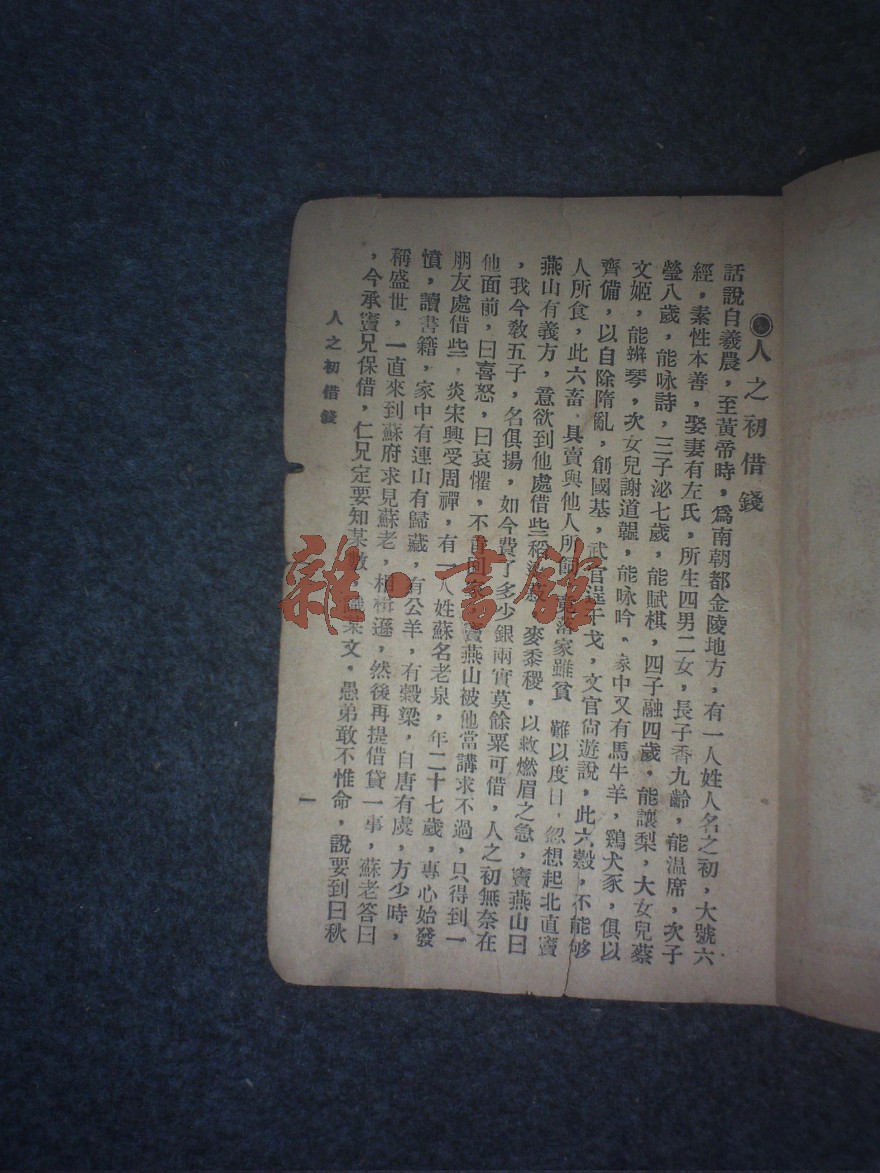 人之初借錢
話說自羲農，至黃帝時，爲南朝都金陵地方，有一人姓人名之初，大號六
經，素性本善，娶妻有左氏，所生四男二女，長子香九齡，能温席，次子
瑩八歲，能咏詩，三子泌七歲，能賦棋，四子融四歲，能讓梨，大女兒蔡
文姬，能辨琴，次女兒謝道韞，能咏吟，家中又有馬牛羊，鷄犬豕，俱以
齊備，以自除隋亂，創國基，武官逞干戈，文官尙遊說，此六穀，不能够
人所食，此六畜，具賣與他人所飼，落家雖貧 難以度日，忽想起北直竇
燕山有義方，意欲到他處借些稻 麥黍稷，以救燃眉之急，竇燕山曰
，我今敎五子，名俱揚，如今費了多少銀兩實莫餘粟可借，人之初無奈在
他面前，曰喜怒，曰哀懼，不 竇燕山被他當講求不過，只得到一
朋友處借些，炎宋興受周禪，有一人姓蘇名老泉，年二十七歲，專心始發
憤，讀書籍，家中有連山有歸藏，有公羊，有穀梁，自唐有虞，方少時，
稱盛世，一直來到蘇府求見蘇老，相揖遜，然後再提借貸一事，蘇老答曰
，今承竇兄保借，仁兄定要知某數，識某文。愚弟敢不惟命，說要到曰秋
人之初借錢
一
雜·書館